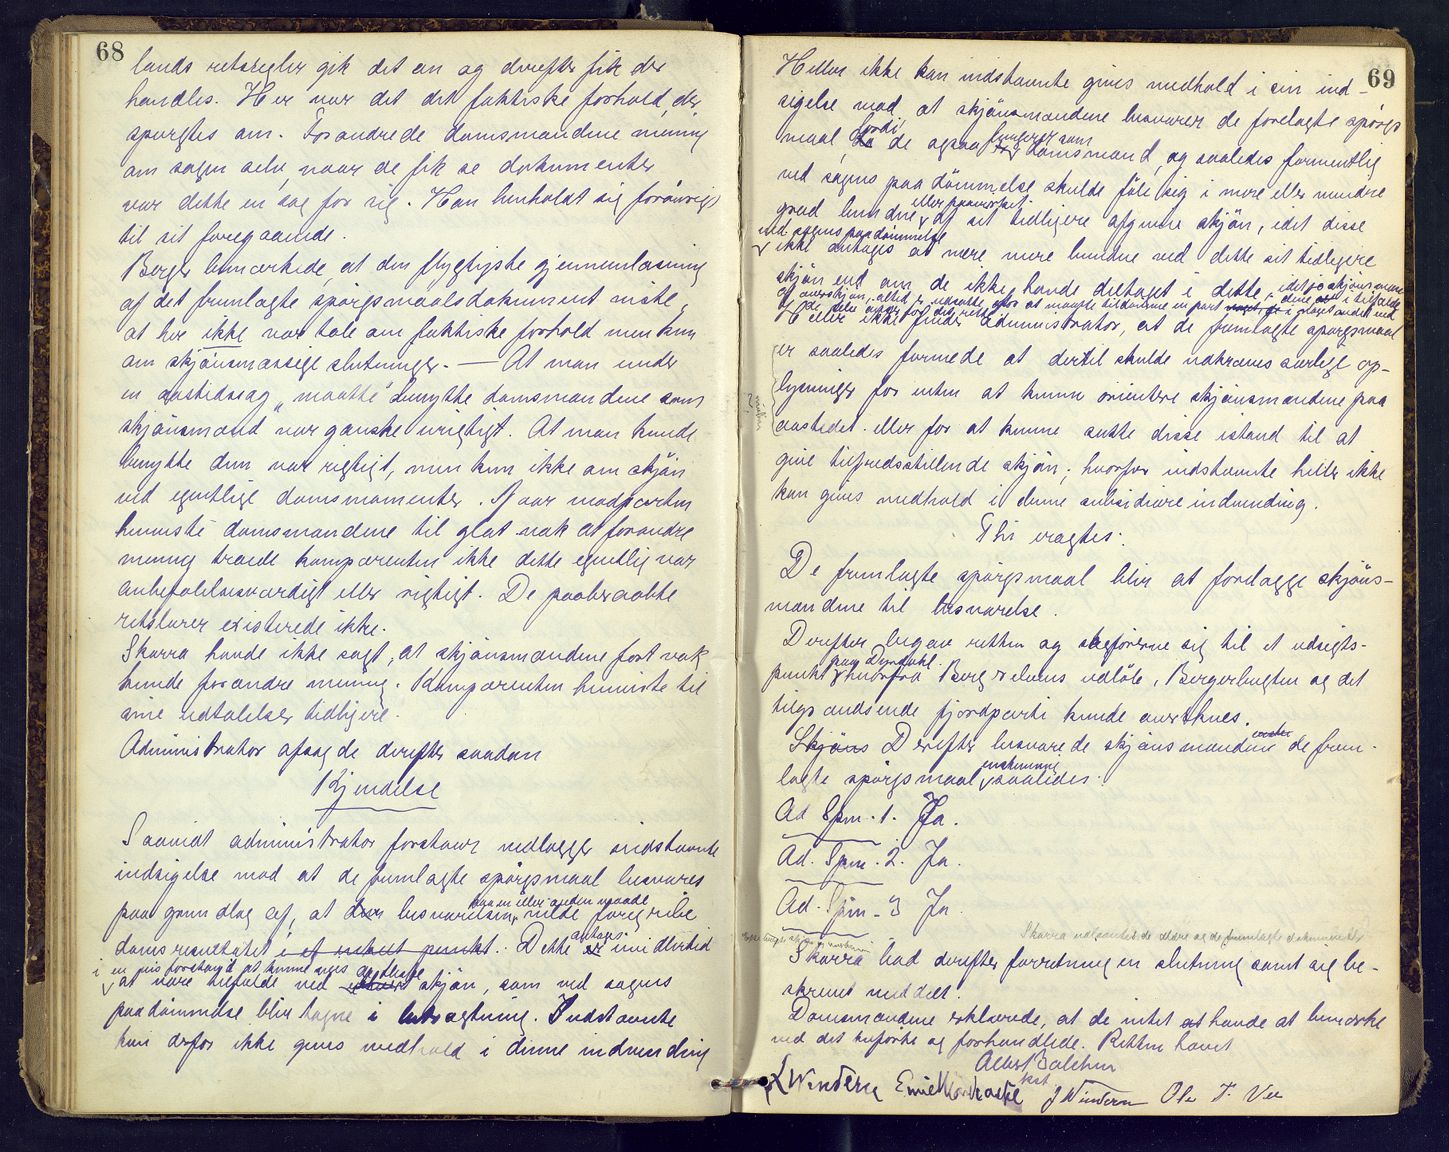 68
lands retsregler gik det an og derefter fik der
handles. Her var det det faktiske forhold, der
spørgtes om. Forandrede domsmændene mening
om sagen selv, naar de fik se dokumenter
var dette en sag for sig. Han henholdt sig forøvrigt
til sit foregaaende.
Berger bemærkede, at den flygtigste gjennemlæsning
af det fremlagte spørgsmaalsdokument viste,
at her ikke var tale om faktiske forhold men kun
om skjønsmæssige slutninger. — At man under
en aastedssag "maatte" benytte domsmændene som
skjønsmænd var ganske urigtigt. At man kunde
benytte dem var rigtigt, men kun ikke om skjøn
ved egentlige domsmomenter. Naar modparten
henviste domsmændene til glat væk at forandre
mening troede komparenten ikke dette egentlig var
anbefalelsesværdigt eller rigtigt. De paaberaabte
retslærer existerede ikke.
Skarra havde ikke sagt, at skjønsmændene fort væk
kunde forandre mening. Komparenten henviste til
sine udtalelser tidligere.
Administrator afsagde derefter saadan
Kjendelse
Saavidt administrator forstaar nedlægger indstævnte
indsigelse mod at de fremlagte spørgsmaal besvares
paa grundlag af, at der besvarelsen paa en eller anden maade vilde foregribe
domsresultatet i et enkelt punkt. Dette er antages imidlertid
i en vis forstand at kunne siges
at være tilfælde ved ethvert opthaft skjøn, som ved sagens
paadømmelse blir tagne i betragtning. Indstævnte
kan derfor ikke gives medhold i denne indvending
69
Heller ikke kan indstævnte gives medhold i sin ind-
sigelse mod, at skjønsmændene besvarer de forelagte spørgs
maal, da fordi de ogsaa fungerer som domsmænd, og saaledes formentlig
ved sagens paadømmelse skulde føle sig i mere eller mindre
grad bundne eller paavirket af sit tidligere afgivne skjøn, idet disse
ved sagens paadømmelse
ikke antages at være mere bundne ved dette sit tidligere
skjøn end om de ikke havde deltaget i dette, idet jo skjønsmænd
Heller ikke finder administrator, at de fremlagte spørgsmaal
er saaledes formede at dertil skulde udkræves særlige op-
lysninger for enten at kunne orientere skjønsmændene paa
aastedet eller for at kunne sætte disse istand til at
give tilfredsstillende skjøn; hvorfor indstævnte heller ikke
kan gives medhold i denne subsidiære indvending.
Thi eragtes:
De fremlagte spørgsmaal blir at forelægge skjøns-
mændene til besvarelse.
Derefter begav retten og sagførerne sig til et udsigts-
punkt paa Dyrdahl hvorfra Bergselvens udløb, Bergerbugten og det
tilgrændsende fjordparti kunde overskues.
Skjøns Derefter besvarede skjønsmændene de frem-
lagte spørgsmaal enstemmig saaledes:
Ad Spm. 1. Ja.
Ad. Spm. 2. Ja.
Ad. Spm. 3 Ja.
Skarra bad derefter forretning en slutning samt sig be-
skrevet meddelt.
Domsmændene erklærede, at de intet at havde at bemærke
ved det tilførte og forhandlede. Retten hævet
Albert Balchen
kst
J Windern
Ole T. Vee